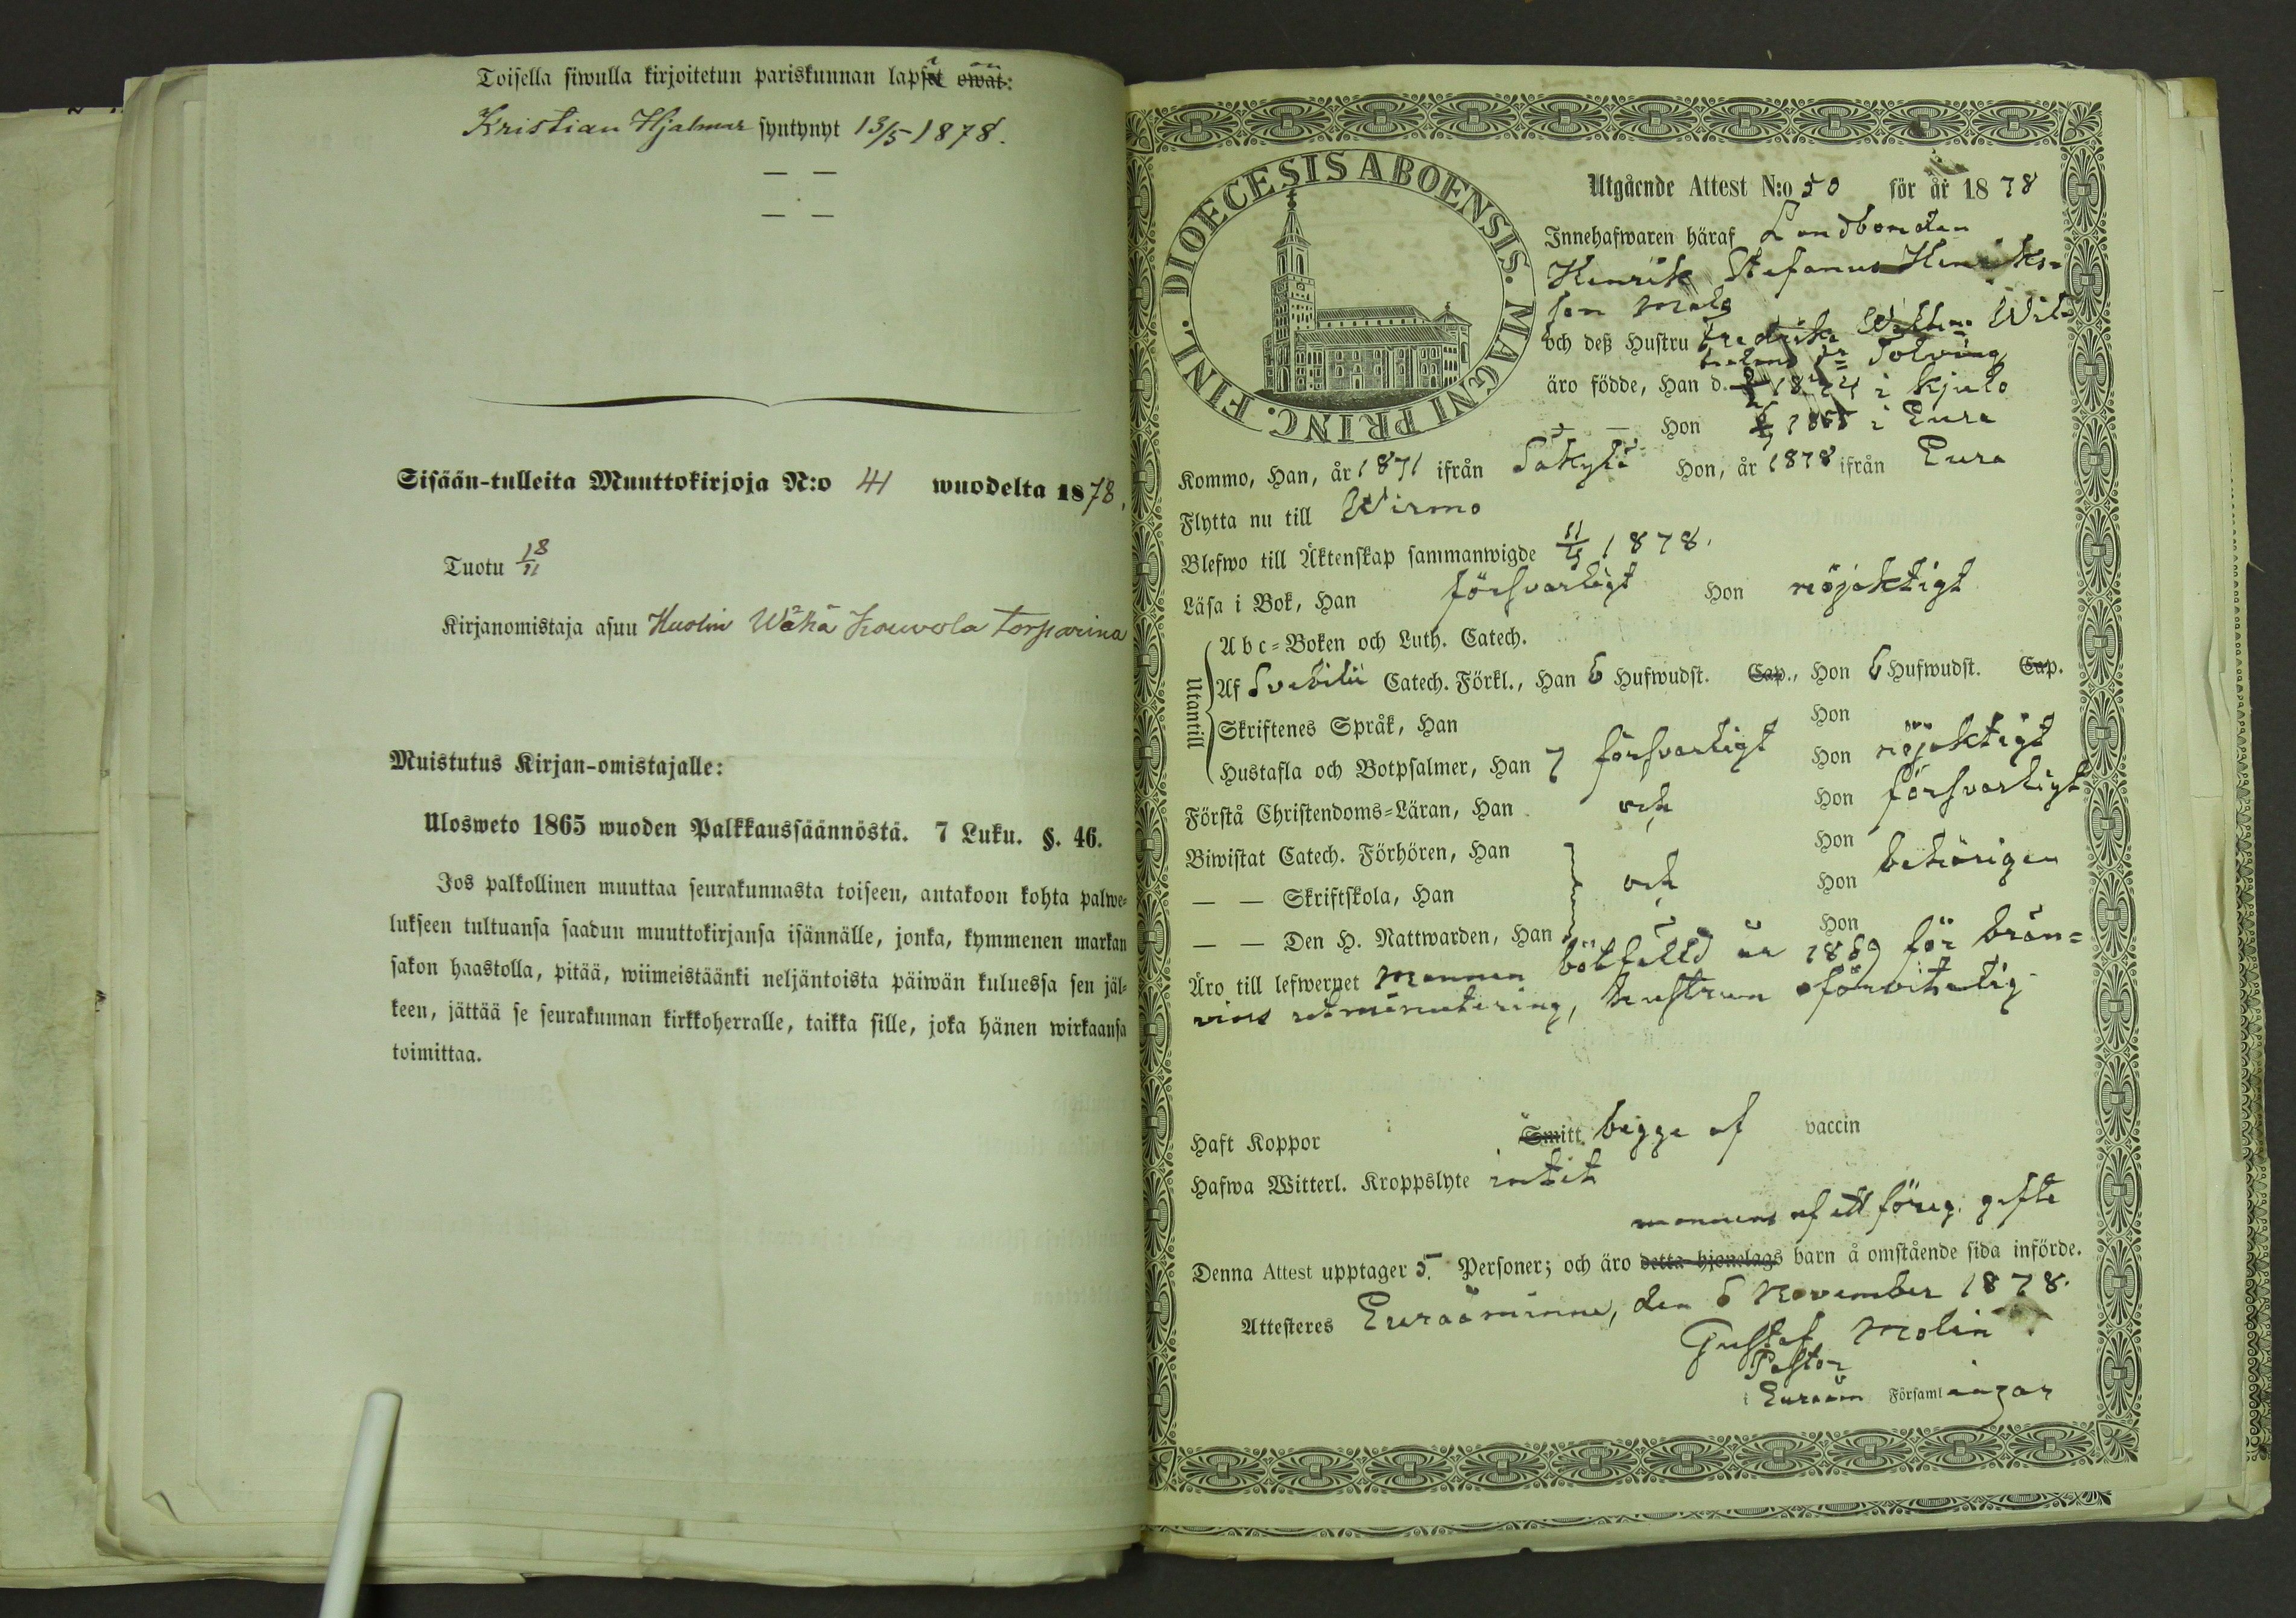 Toisella siwulla kirjoitetun pariskunnan lapset owat: i on
Kristian Hjalmar syntynyt 13/5 1878.
— —
— —
Sisään-tulleita Muuttokirjoja N:o 41 wuodelta 1878,
Tuotu 18/11
Kirjanomistaja asuu Wähä Torparina
Muistutus Kirjan-omistajalle:
Ulosweto 1865 wuoden Palkkaussäännöstä. 7 Luku. §. 46.
Jos palkollinen muuttaa seurakunnasta toiseen, antakoon kohta palwe=
lukseen tultuansa saadun muuttokirjansa isännälle, jonka, kymmenen markan
sakon haastolla, pitää, wiimeistäänki neljäntoista päiwän kuluessa sen jäl=
keen, jättää se seurakunnan kirkkoherralle, taikka sille, joka hänen wirkaansa
toimittaa.
DIOECESIS ABOENSIS. MAGNI PRINC. FINL.
Utgående Attest N:o 50 för år 1878
Innehafwaren häraf Landbonden
Henrik Stefanus Henriks=
son Malo
och deß Hustru Fredrika Wilhe Wil=
helms dr Tolving
äro födde, Han d. i Kjulo
— — Hon i Eura
Kommo, Han, år 1871 ifrån Säkylä Hon, år 1878 ifrån Eura
Flytta nu till Wirmo
Blefwo till Äktenskap sammanwigde 1878.
Läsa i Bok, Han försvarligt Hon nöjaktigt
Utantill
Abc=Boken och Luth. Catech.
Af Svebilii Catech. Förkl., Han 6 Hufwudst. Cap., Hon 6 Hufwudst. Cap.
Skriftenes Språk, Han Hon
Hustafla och Botpsalmer, Han 7 försvarligt Hon nöjaktigt
Förstå Christendoms=Läran, Han och Hon försvarligt
Biwistat Catech. Förhören, Han Hon
— — Skriftskola, Han och Hon behörigen
— — Den H. Nattwarden, Han Hon
Äro till lefwernet Mannen bötfälld år 1869 för brän=
vins utminutering, hustrun oförvitelig
Haft Koppor Smitt. begge af vaccin
Hafwa Witterl. Kroppslyte intet
mannens af ett föreg. gifte
Denna Attest upptager 5. Personer; och äro detta hjonelags barn å omstående sida införde.
Attesteres Euraåminne, den 6 November 1878.
Gustaf Molin
Pastor
i Euraåm Församlingar